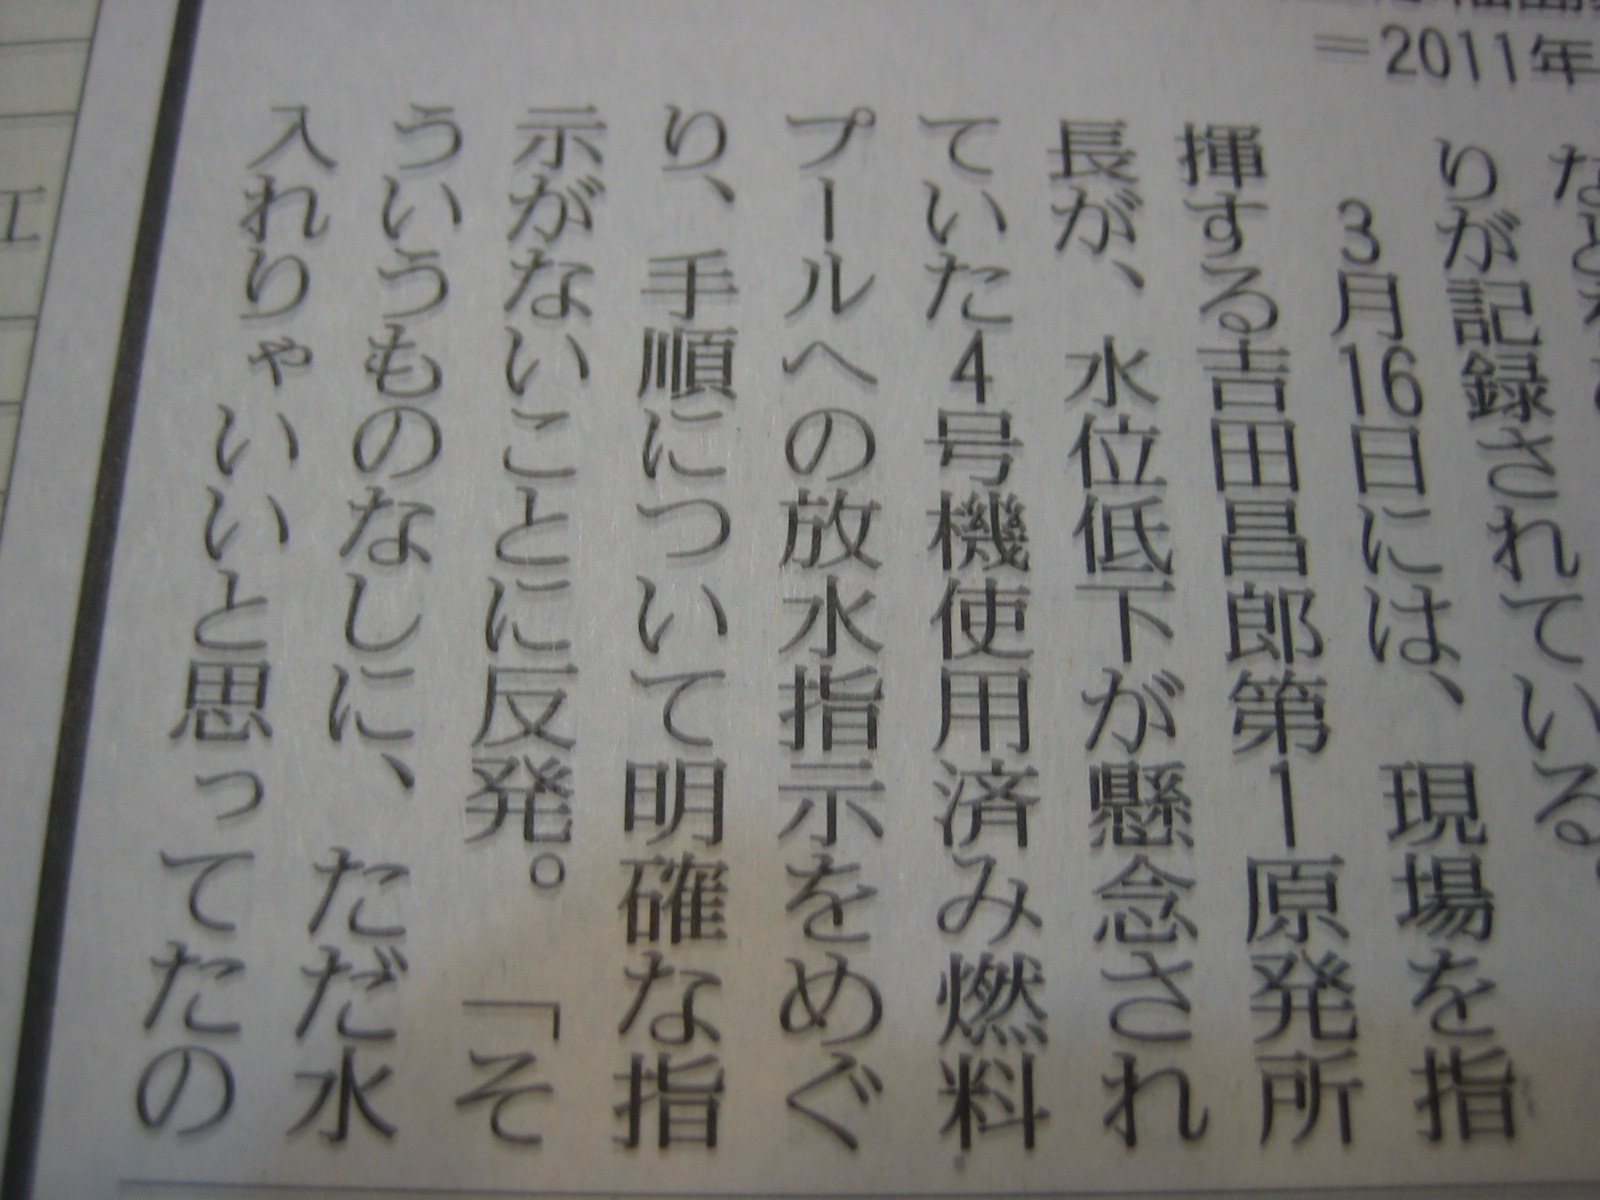 ＝2011年
りが記録されている。
3月16日には、現場を指
揮する吉田昌郎第1原発所
長が、水位低下が懸念され
ていた4号機使用済み燃料
プールへの放水指示をめぐ
り、手順について明確な指
示がないことに反発。「そ
ういうものなしに、ただ水
入れりゃいいと思ってたの